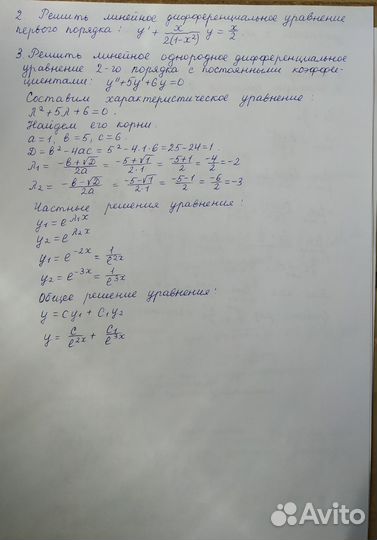 2. Решить линейное дифференциальное уравнение
первого порядка: y' + x/(2(1-x²)) y = x/2
3. Решить линейное однородное дифференциальное
уравнение 2-го порядка с постоянными коэффи-
циентами: y''+5y'+6y=0
Составим характеристическое уравнение:
λ²+5λ+6=0.
Найдем его корни.
a=1, b=5, c=6.
D=b²-4ac=5²-4·1·6=25-24=1.
λ₁ = (-b+√D)/2a = (-5+√1)/(2·1) = (-5+1)/2 = -4/2 = -2
λ₂ = (-b-√D)/2a = (-5-√1)/(2·1) = (-5-1)/2 = -6/2 = -3
Частные решения уравнения:
y₁ = e^(λ₁x)
y₂ = e^(λ₂x)
y₁ = e^(-2x) = 1/e^(2x)
y₂ = e^(-3x) = 1/e^(3x)
Общее решение уравнения:
y = Cy₁ + C₁y₂
y = C/e^(2x) + C₁/e^(3x)
Avito